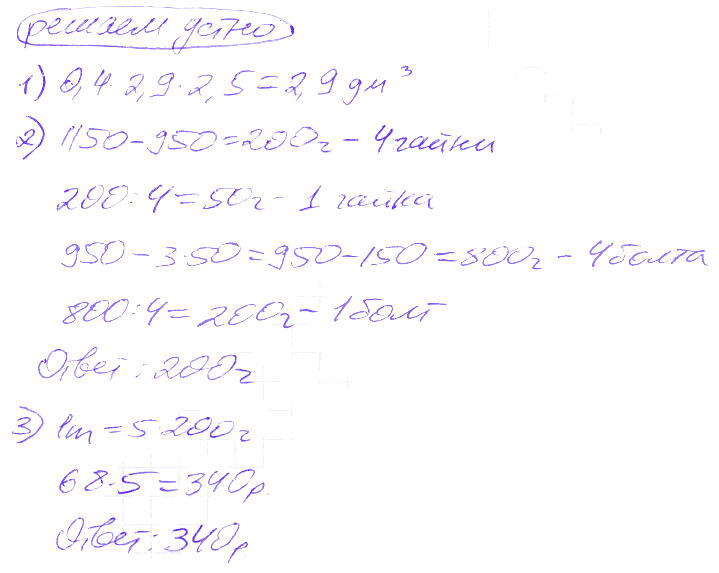 решаем устно
1) 0,4·2,9·2,5=2,9 дм³
2) 1150-950=200г - 4 гайки
200:4=50г - 1 гайка
950-3·50=950-150=800г - 4 болта
800:4=200г - 1 болт
Ответ: 200г
3) 1 = 5·200г
68·5=340р.
Ответ: 340р